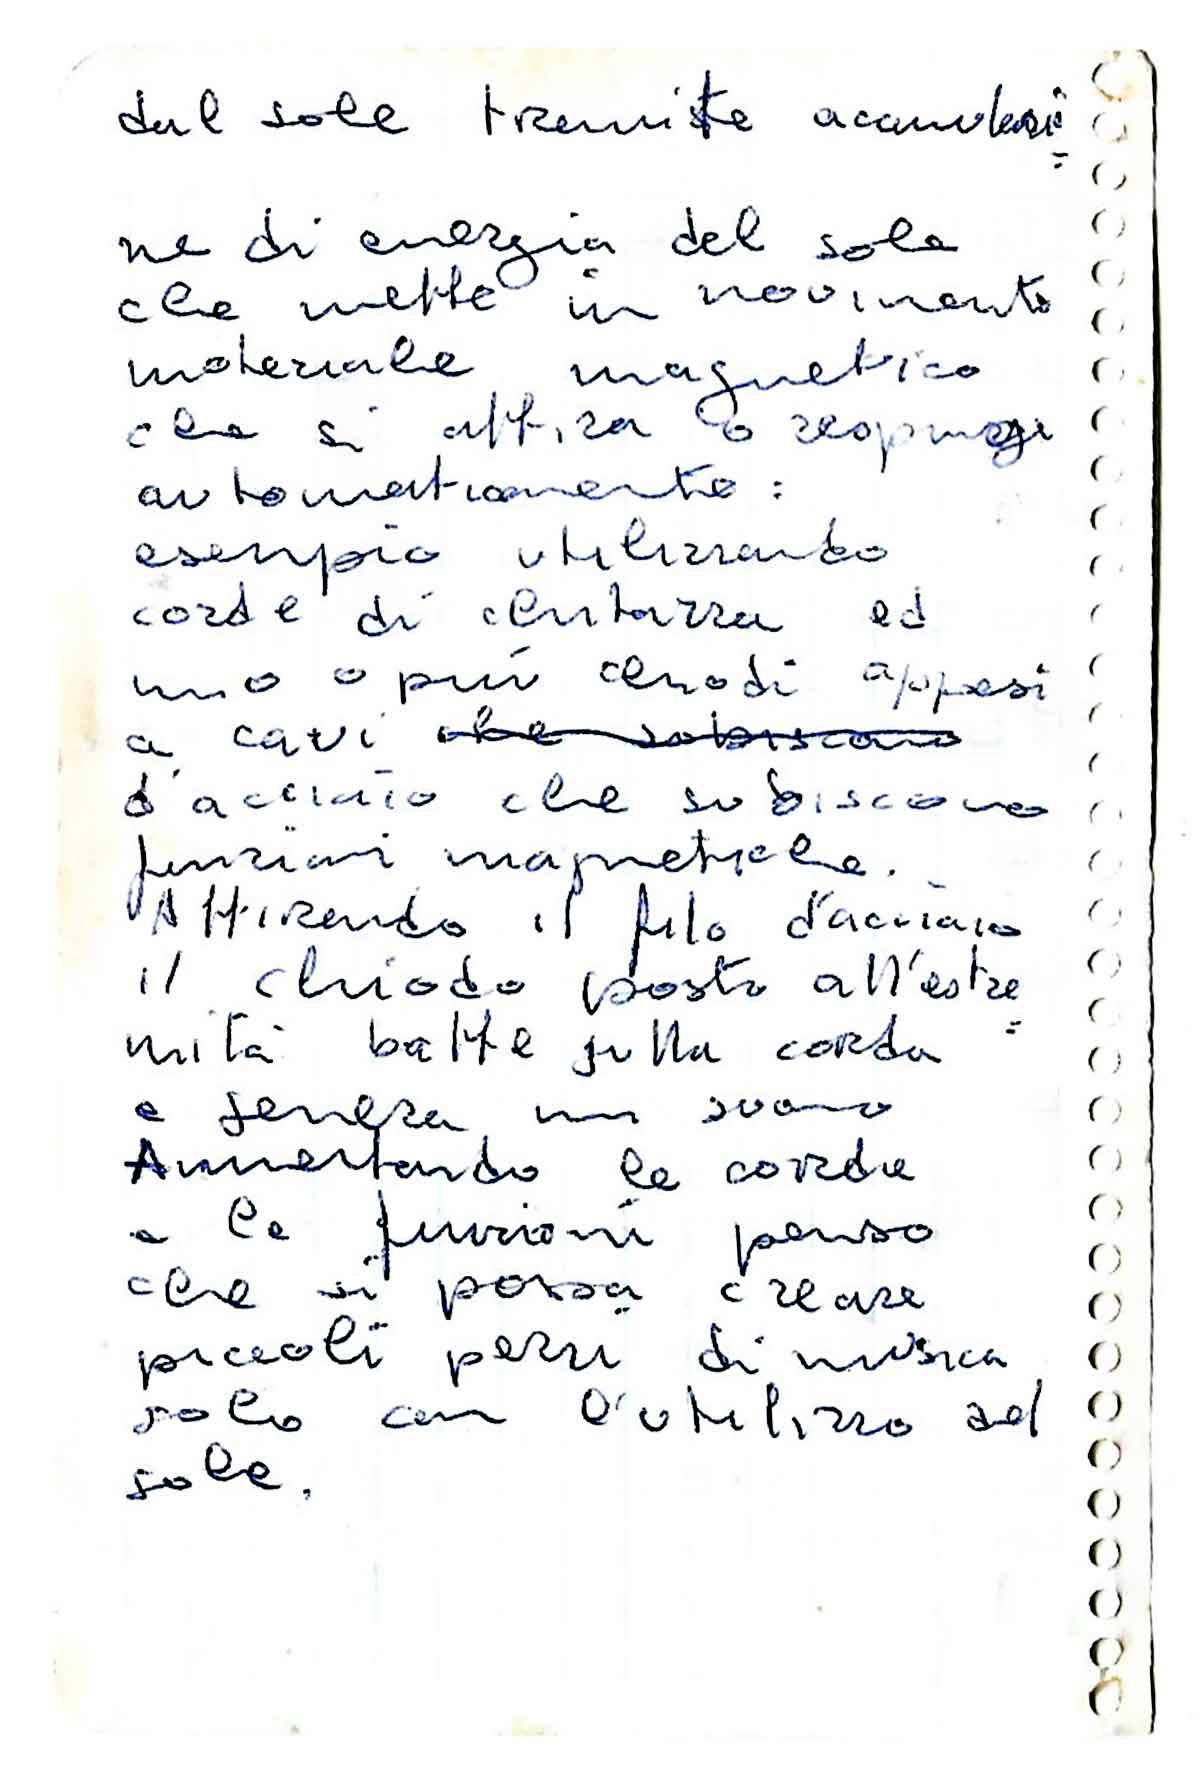 dal sole tramite acumulasi=
ne di energia del sole
che mette in movimento
materiale magnetico
che si attira o respinge
automaticamente:
esempio utilizzando
corde di chitarra ed
uno o più chiodi appesi
a cavi che subiscono
d'acciaio che subiscono
funzioni magnetiche.
Attirando il filo d'acciaio
il chiodo posto all'estre=
mità batte sulla corda
e genera un suono
Aumentando le corde
e le funzioni penso
che si possa creare
piccoli pezzi di musica
solo con l'utilizzo del
sole.